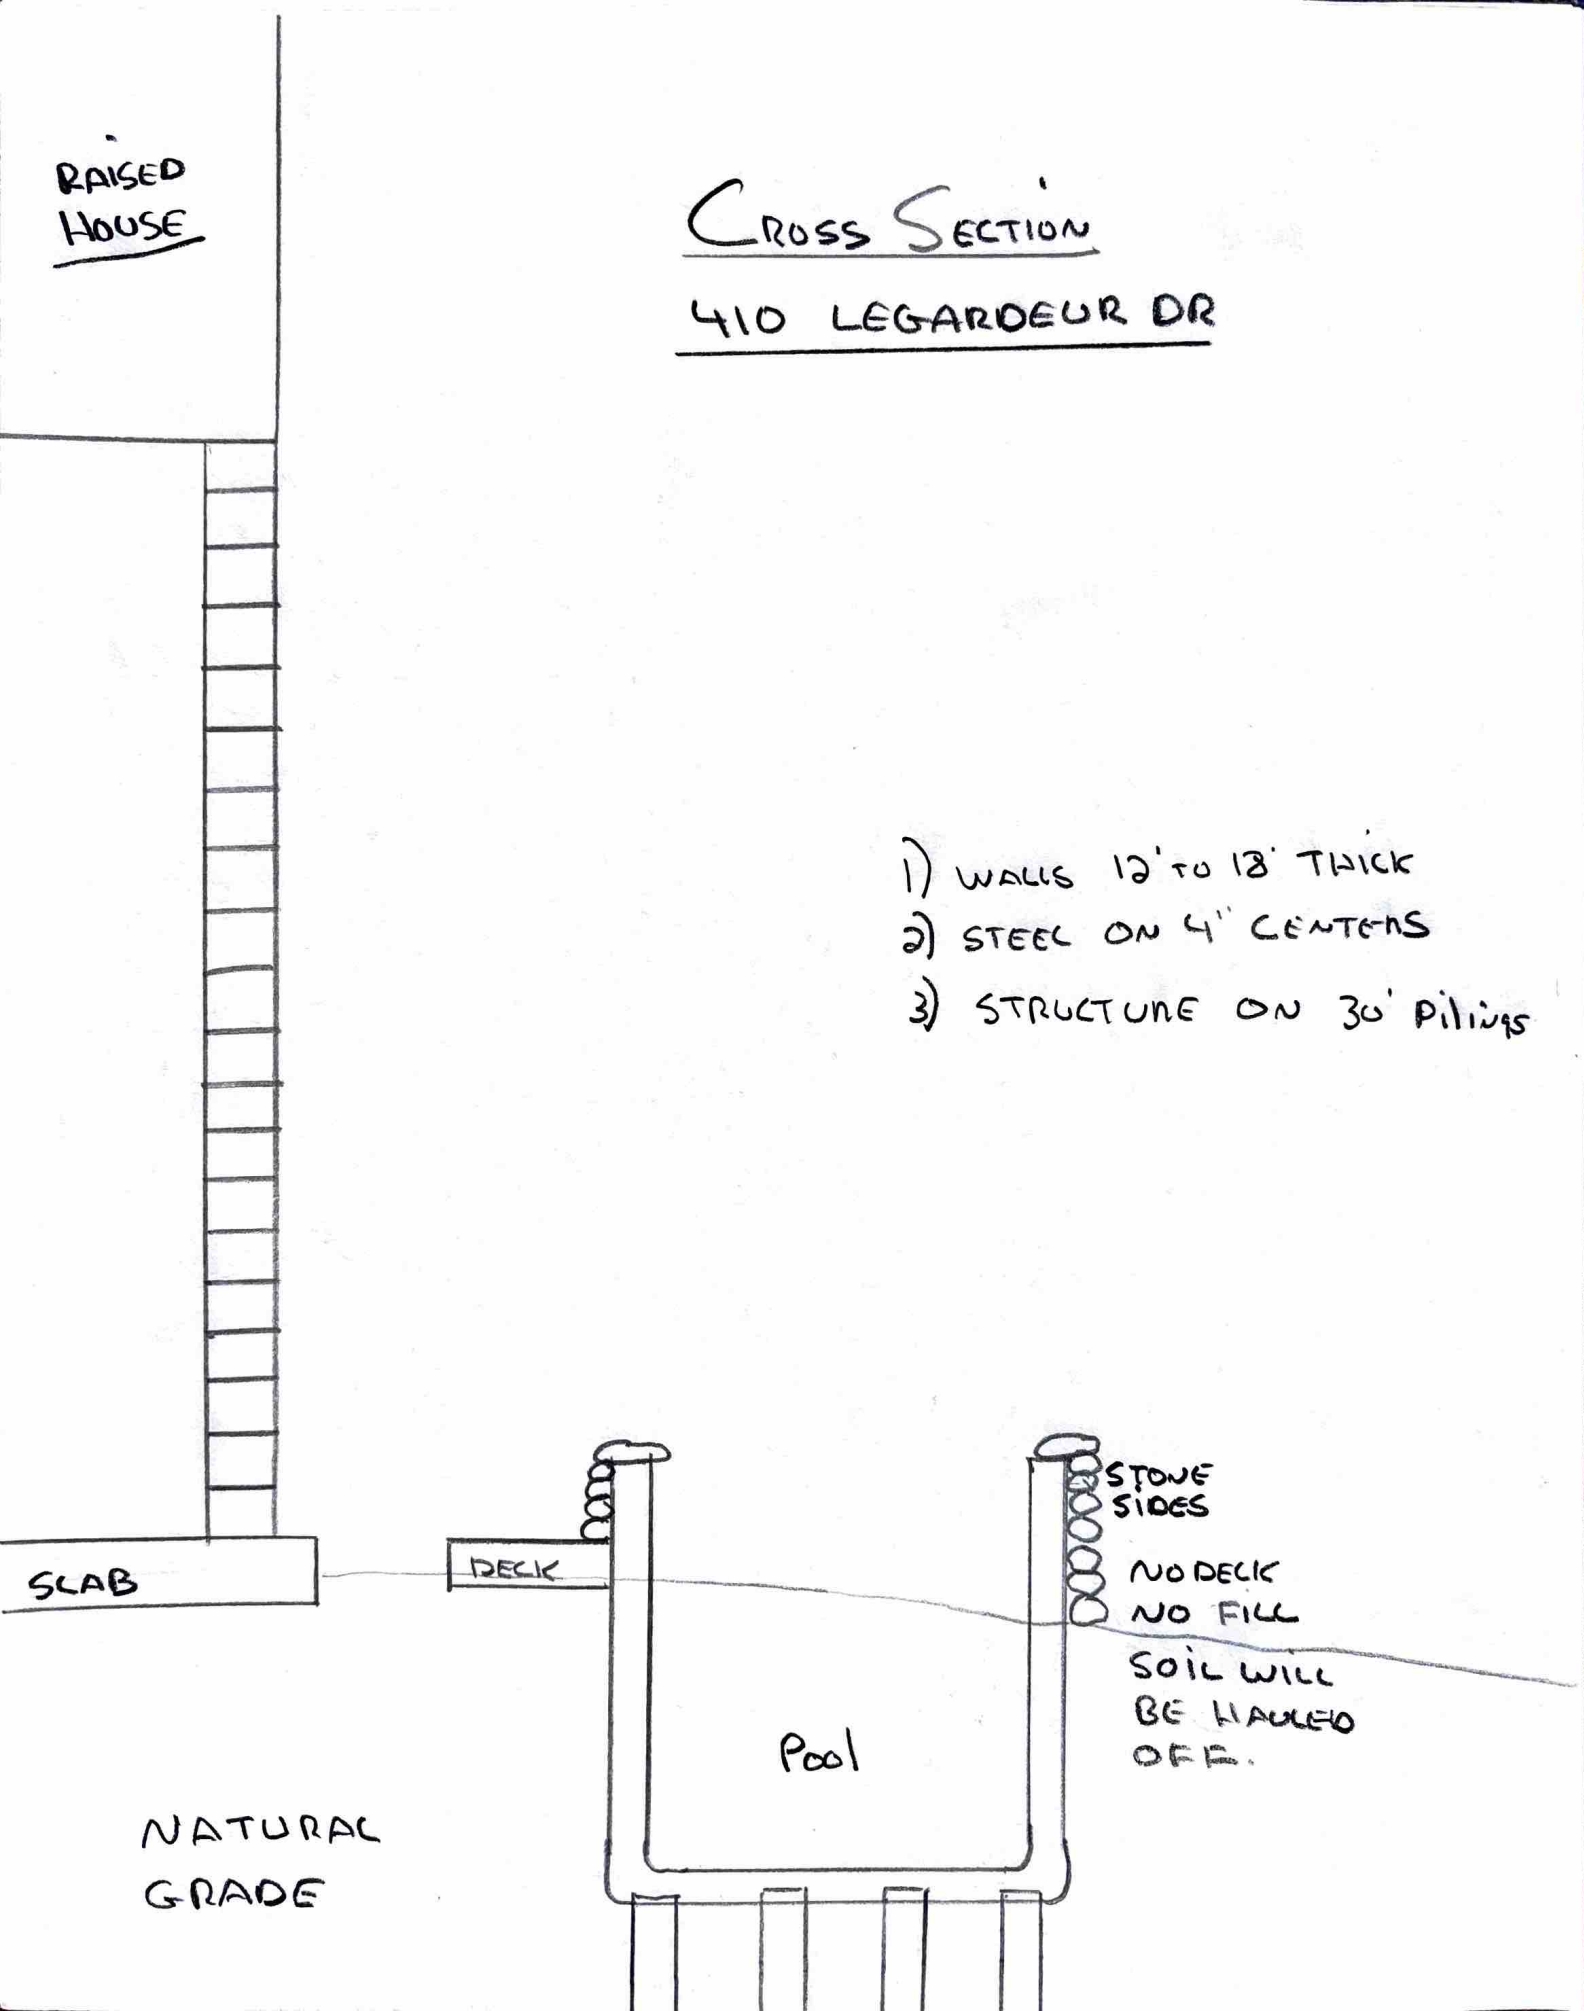 RAISED
HOUSE
CROSS SECTION
410 LEGARDEUR DR
1) WALLS 12' TO 18' THICK
2) STEEL ON 4" CENTERS
3) STRUCTURE ON 30' Pilings
STONE
SIDES
DECK
SLAB
NO DECK
NO FILL
SOIL WILL
BE HAULED
OFF.
Pool
NATURAL
GRADE